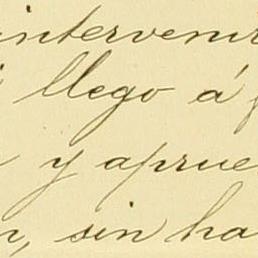 intervenir
llego á
y aprue
n, sin ha